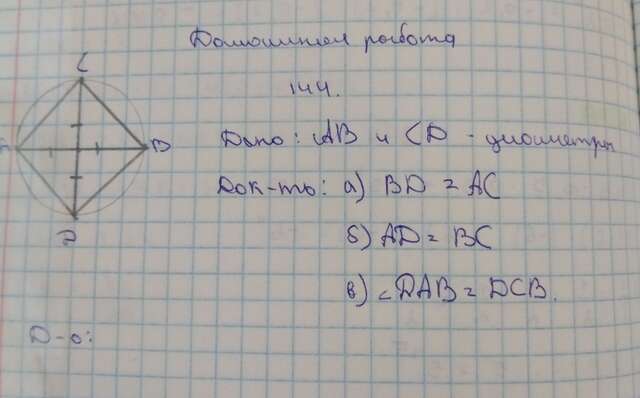 Домашняя работа
144.
Дано: AB и CD - диаметры
Док-ть: а) BD = AC
б) AD = BC
в) ∠DAB = DCB.
Д-о:
C
D